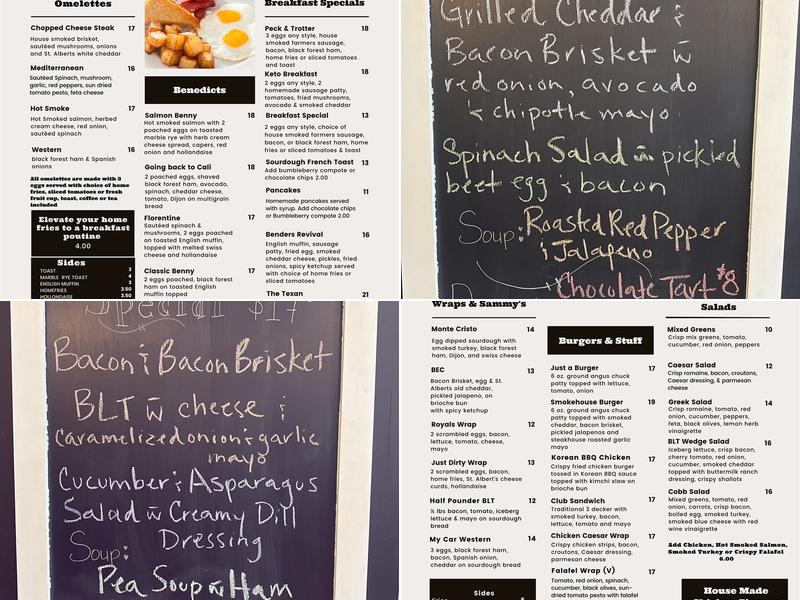 Omelettes
Chopped Cheese Steak 17
House smoked brisket,
sautéed mushrooms, onions
and St. Alberts white cheddar
Mediterranean 16
Sautéed Spinach, mushroom,
garlic, red peppers, sun dried
tomato pesto, feta cheese
Hot Smoke 17
Hot Smoked salmon, herbed
cream cheese, red onion,
sautéed spinach
Western 16
black forest ham & Spanish
onions
All omelettes are made with 3
eggs served with choice of home
fries, sliced tomatoes or fresh
fruit cup, toast, coffee or tea
included
Elevate your home
fries to a breakfast
poutine
4.00
Sides
TOAST 3
MARBLE RYE TOAST 4
ENGLISH MUFFIN 3
HOMEFRIES 3.50
HOLLONDAISE 3.50
Benedicts
Salmon Benny 18
Hot smoked salmon with 2
poached eggs on toasted
marble rye with herb cream
cheese spread, capers, red
onion and hollandaise
Going back to Cali 18
2 poached eggs, shaved
black forest ham, avocado,
spinach, cheddar cheese,
tomato, Dijon on multigrain
bread
Florentine 17
Sautéed spinach &
mushrooms, 2 eggs poached
on toasted English muffin,
topped with melted swiss
cheese and hollandaise
Classic Benny 17
2 eggs poached, black forest
ham on toasted English
muffin topped
Breakfast Specials
Peck & Trotter 18
3 eggs any style, house
smoked farmers sausage,
bacon, black forest ham,
home fries or sliced tomatoes
and toast
Keto Breakfast 18
2 eggs any style, 2
homemade sausage patty,
tomatoes, fried mushrooms,
avocado & smoked cheddar
Breakfast Special 13
2 eggs any style, choice of
house smoked farmers sausage,
bacon, or black forest ham, home
fries or sliced tomatoes & toast
Sourdough French Toast 13
Add bumbleberry compote or
chocolate chips 2.00
Pancakes 11
Homemade pancakes served
with syrup. Add chocolate chips
or Bumbleberry compote 2.00
Benders Revival 16
English muffin, sausage
patty, fried egg, smoked
cheddar cheese, pickles, fried
onions, spicy ketchup served
with choice of home fries or
sliced tomatoes
The Texan 21
Grilled Cheddar &
Bacon Brisket w̄
red onion, avocado
& chipotle mayo
Spinach Salad w̄ pickled
beet egg & bacon
Soup: Roasted Red Pepper
& Jalapeno
Chocolate Tart $8
Special $17
Bacon & Bacon Brisket
BLT w̄ cheese &
caramelized onion & garlic
mayo
Cucumber & Asparagus
Salad w̄ Creamy Dill
Dressing
Soup:
Pea Soup w̄ Ham
Wraps & Sammy's
Monte Cristo 14
Egg dipped sourdough with
smoked turkey, black forest
ham, Dijon, and swiss cheese
BEC 13
Bacon Brisket, egg & St.
Alberts old cheddar,
pickled jalapeno, on
brioche bun
with spicy ketchup
Royals Wrap 12
2 scrambled eggs, bacon,
lettuce, tomato, cheese,
mayo
Just Dirty Wrap 13
2 scrambled eggs, bacon,
home fries, St. Albert's cheese
curds, hollandaise
Half Pounder BLT 12
½ lbs bacon, tomato, iceberg
lettuce & mayo on sourdough
bread
My Car Western 14
3 eggs, black forest ham,
bacon, Spanish onion,
cheddar on sourdough bread
Sides
Burgers & Stuff
Just a Burger 17
6 oz. ground angus chuck
patty topped with lettuce,
tomato, onion
Smokehouse Burger 19
6 oz. ground angus chuck
patty topped with smoked
cheddar, bacon brisket,
pickled jalapenos and
steakhouse roasted garlic
mayo
Korean BBQ Chicken 17
Crispy fried chicken burger
tossed in Korean BBQ sauce
topped with kimchi slaw on
brioche bun
Club Sandwich 17
Traditional 3 decker with
smoked turkey, bacon,
lettuce, tomato and mayo
Chicken Caesar Wrap 17
Crispy chicken strips, bacon,
croutons, Caesar dressing,
parmesan cheese
Falafel Wrap (V) 17
Tomato, red onion, spinach,
cucumber, black olives, sun-
dried tomato pesto with falafel
Salads
Mixed Greens 10
Crisp mix greens, tomato,
cucumber, red onion, peppers
Caesar Salad 12
Crisp romaine, bacon, croutons,
Caesar dressing, & parmesan
cheese
Greek Salad 14
Crisp romaine, tomato, red
onion, cucumber, peppers,
feta, black olives, lemon herb
vinaigrette
BLT Wedge Salad 16
Iceberg lettuce, crisp bacon,
cherry tomato, red onion,
cucumber, smoked cheddar
topped with buttermilk ranch
dressing, crispy onions
Cobb Salad 16
Mixed greens, tomato, red
onion, carrots, crisp bacon,
boiled egg, smoked turkey,
smoked blue cheese with red
wine vinaigrette
Add Chicken, Hot Smoked Salmon,
Smoked Turkey or Crispy Falafel
6.00
House Made